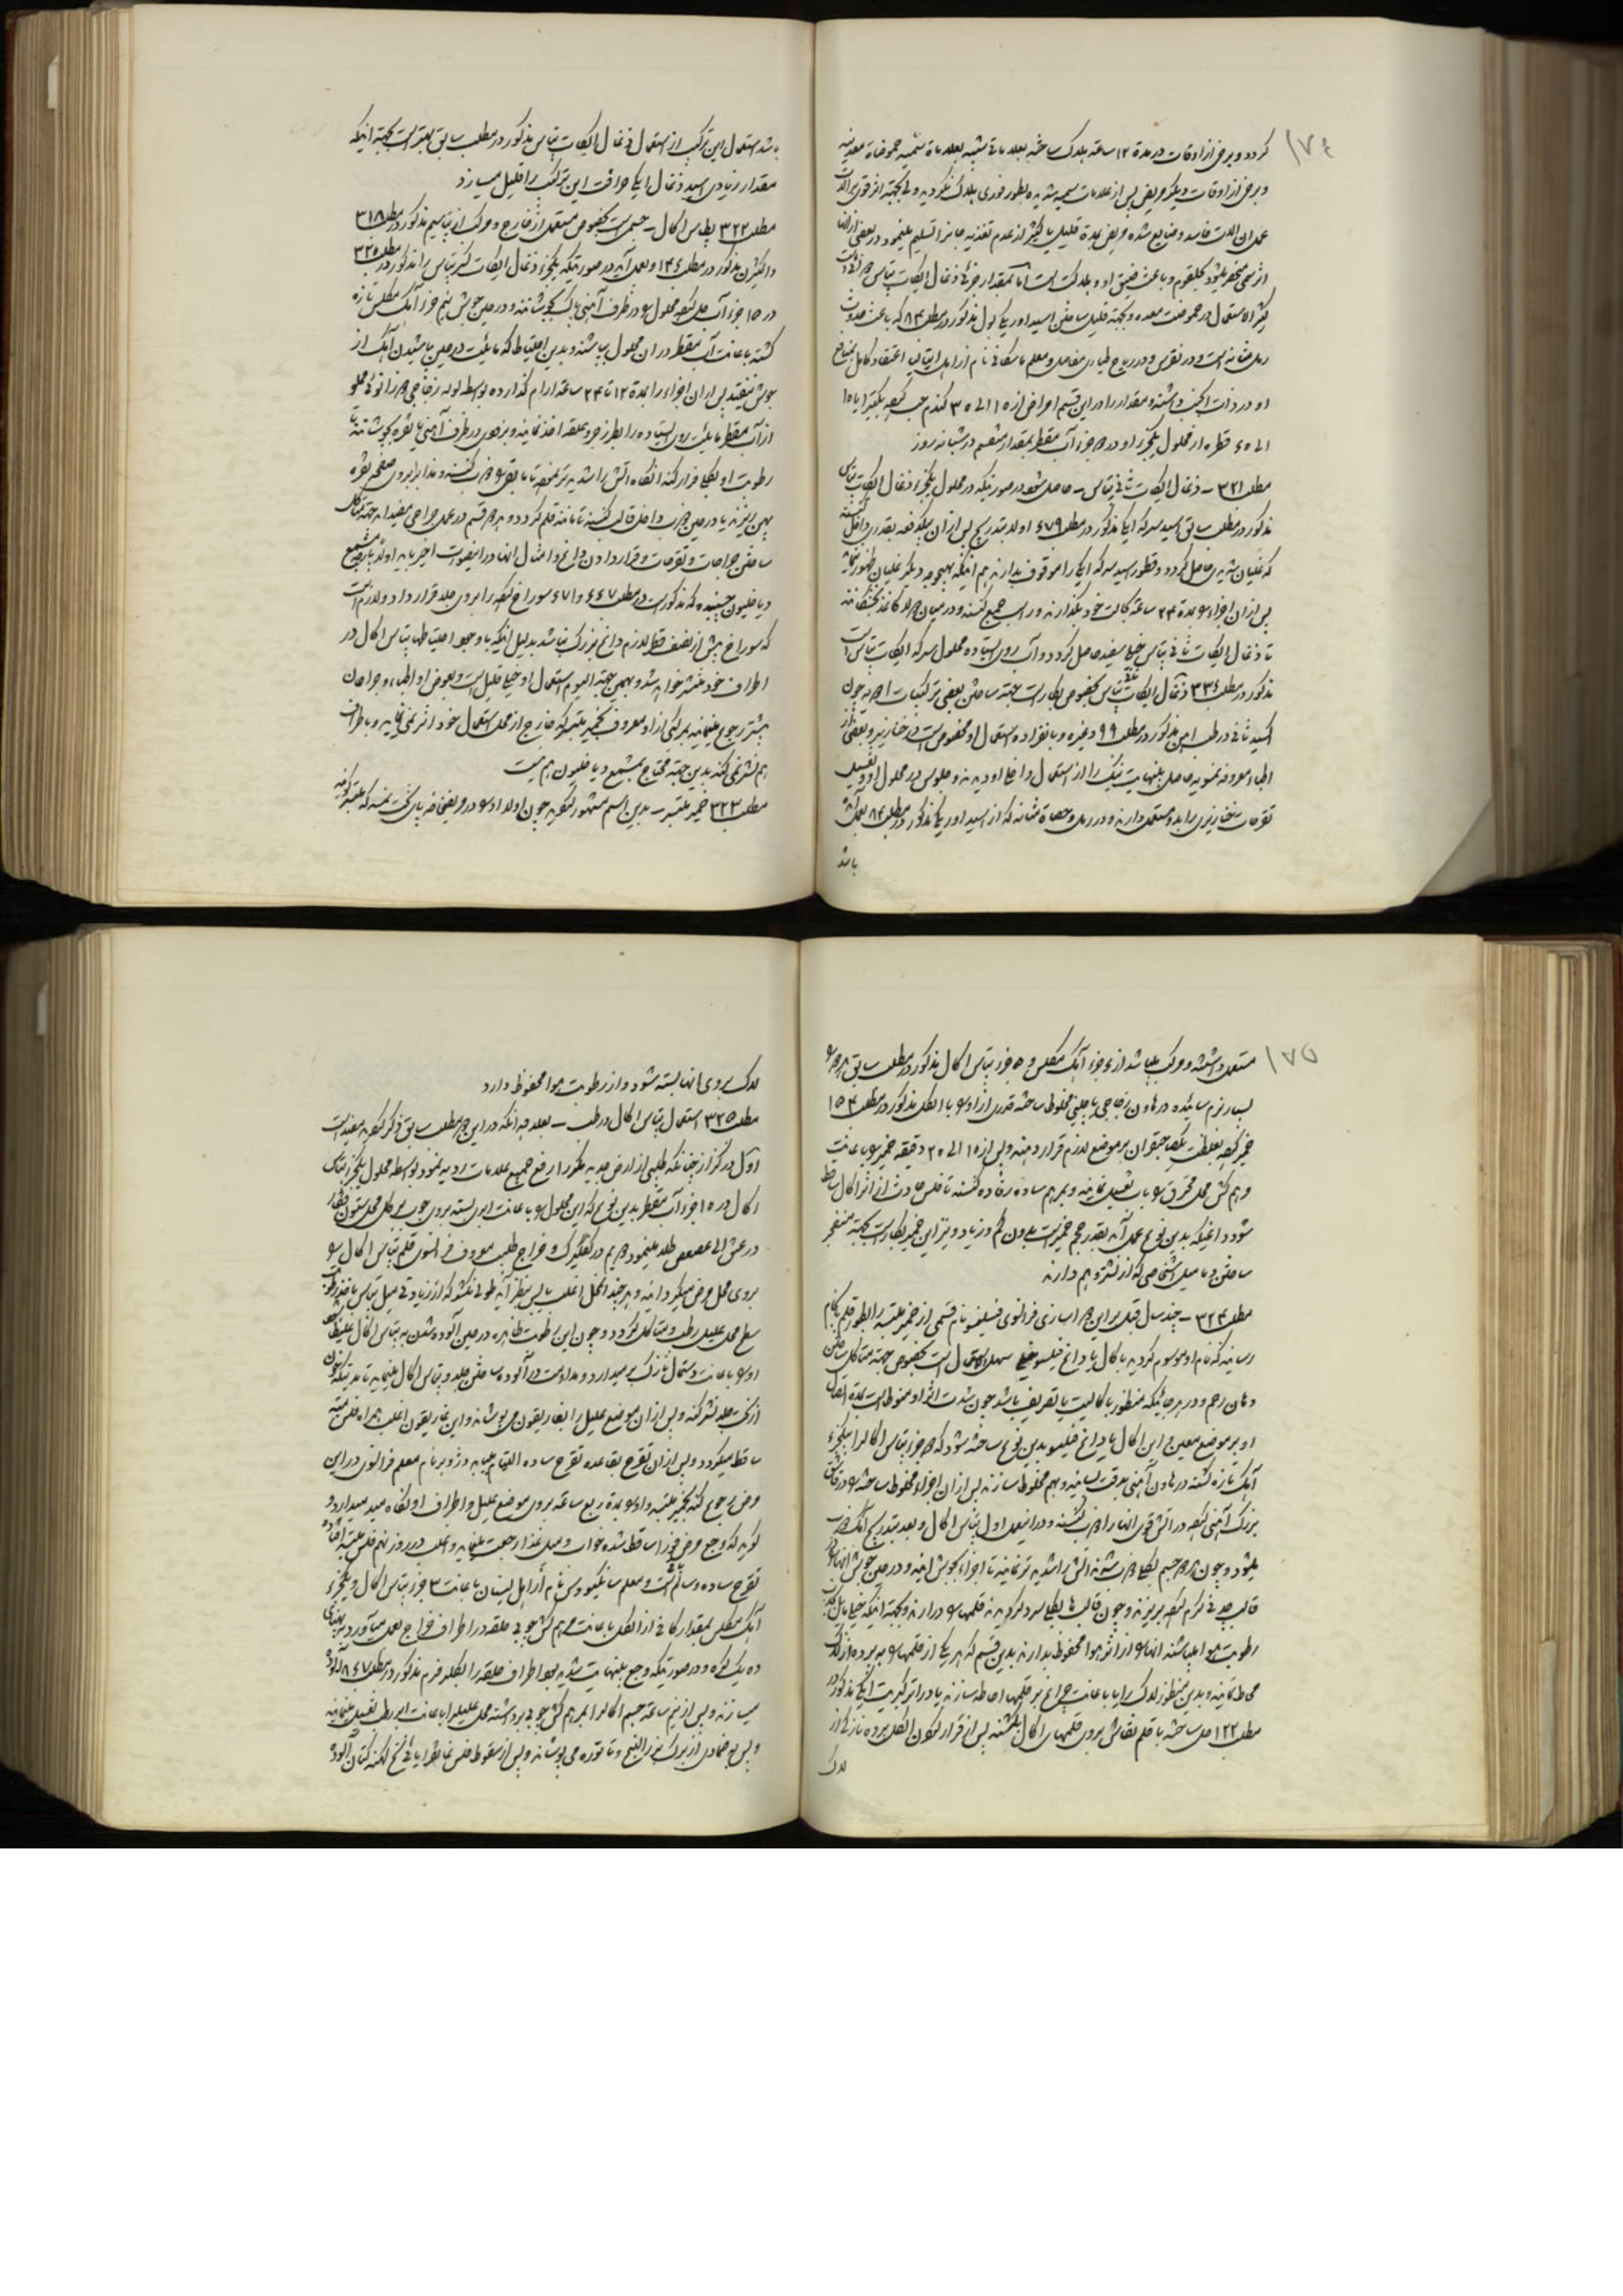 ۱۷۴
گردد و برخی از اوقات در مدة ۱۲ ساعة هلاک ساخته بعلاماتی مشبه بعلاماة سمیه حموضاة معدنیه
و برخی از اوقات دیگر مریض پس از علامات سمیه شدیده بطور فوری هلاک نگردیده ولی بجهة
عمل ان الات فاسد و ضایع شده مریض بمدة قلیل یا کثیر از عدم تغذیه جانرا تسلیم مینمود و در بعضی از آن
اثر سمی منحصر میشود بحلقوم و باعث ضیق او و هلاکت است اما بمقدار جزئی ذغال الیکات پتاس
کثیر الاستعمال در حموضت معده و بجهة قلیل ساختن اسید اوریکا بول مذکور در مطلب ۸۴ که باعث حدوث
رمل مثانه است و در نقرس و در ریاح طیاری مفاصل و معلم ماسکانی نام از اهل ایتالیا اعتقاد کامل بمنافع
او در ذات الجنب داشته و مقدار را در این قسم امراض از ۱۵ الی ۳۵ گندم حب کرده بکثیر یا ۱۵
الی ٤٥ قطره از محلول یکجزء او در جزء آب مقطر بمقدار منقسم در شبانه روز
مطلب ۳۲۱ – ذغال الیکات ثانی پتاس – حاصل شود در صورتیکه در محلول یکجزء ذغال الیکات پتاس
مذکور در مطلب سابق اسید سرکه ایکا مذکور در مطلب ٤٧٩ اولا بتدریج پس از ان بیکدفعه بقدری داخل کنند
که غلیان شدیدی حاصل گردد و قطور اسید سرکه ایکا را موقوف بدارند هم اینکه بهیچوجه دیگر غلیان ظهور ننماید
پس از ان اجزاء را بمدة ۲۴ ساعة بحالت خود بگذارند و راسب جمع کنند و در میان اوراق کاغذ بخشکانند
تا ذغال الیکات ثانی پتاس خیلی سفید حاصل گردد و آب روی ایستاده محلول سرکه الیکات پتاس است
مذکور در مطلب ۳۳٤ ذغال الیکات ثانی پتاس بخصوص بکار است بجهة ساختن بعضی ترکیبات آهن چون
اکسید ثانی در طب اهن مذکور در مطلب ۹۹ و غیره و بانفراده استعمال او مخصوص است در خنازیر و بعضی از
اطباء معروفه نموده حاصل بینهایت نیک را از استعمال داخل او دیدند و جلوس در محلول او و تغسیل
تقرحات خنازیری را بدو مستعمل دارند و در رمل و حصاة مثانه که از اسید اوریکا مذکور در مطلب ۸۴ بعمل آمده
باشد
باشد استعمال این ترکیب از استعمال ذغال الیکات پتاس مذکور در مطلب سابق بهتر است بجهة اینکه
مقدار زیادی اسید ذغال ایکا حراقت این ترکیب را قلیل میسازد
مطلب ۳۲۲ پتاس اکال – جسمی است بخصوص مستعمل از خارج و مرکب از پتاسیم مذکور در مطلب ۳۱۸
و اکسیژن مذکور در مطلب ۱۳٤ و بعمل آید در صورتیکه یکجزء ذغال الیکات کثیر پتاس را مذکور در مطلب ۳۲۰
در ۱۵ جزء آب حل کرده محلول را در ظرف آهنی پاک بجوشانند و در حین جوش نیم جزء آهک مکلس تازه
کشته باعانت آب مقطر در ان محلول بپاشند و بدین احتیاط که مایئت در حین پاشیدن آهک از
جوش نیفتد پس از ان اجزاء را بمدة ۱۲ تا ۲۴ ساعة ارام گذارده بواسطه لوله زجاجی زانوئی مملو
از آب مقطر مایئت روی ایستاده را بطرز جر و علقه اخذ نمایند و بزودی در ظرف آهنی یا نقره بجوشانند تا
رطوبت او بکلی فرار کند انگاه اتش را شدیدتر نموده تا مابقی ذوب کنند و مذاب را بر روی صفحه نقره
پهن بریزند یا در حین ذوب داخل قالب کنند تا مانند قلم گردد و بدو قسم در عمل جراحی مفید اند جهة متآکل
ساختن جراحات و تقرحات و قرار دادن داغ و امثال انها در اینصورت اخیر باید اولا پارچه مشمع
دیاخلیون چسبنده که مذکور است در مطلب ٤٤٧ و ٤٧١ سوراخ کرده بر روی جلد قرار داد و لازم است
که سوراخ بیش از نصف قطر لازم داغ بزرگ نباشد بدلیل اینکه با وجود احتیاطها پتاس اکال در
اطراف خود منتشر خواهد شد و بهمین جهة الیوم استعمال او خیلی قلیل است و بعوض او اطباء و جراحان
بیشتر رجوع مینمایند بمرکبی از او معروف بخمیر بلتبر که خارج از محل استعمال خود اثر نمینماید و باطراف
هم نشر نمیکند بدین جهة محتاج بمشمع دیاخلیون هم نیست
مطلب ۳۲۳ خمیر بلتبر – بدین اسم مشهور گردیده چون اولا او را در مریضخانه پای تخت نمسه که بلتبر گویند
۱۷۵
مستعمل داشتند و مرکب میباشد از ٤ جزء آهک مکلس و ۵ جزء پتاس اکال مذکور در مطلب سابق هر دو را
بسیار نرم سائیده در هاون زجاجی یا چینی مخلوط ساخته قدری از او را با الکل مذکور در مطلب ۱۵۴
خمیر کرده بغلظت یکصاحبقران بر موضع لازم قرار دهند و پس از ۱۵ الی ۲۰ دقیقه خمیر را باعانت
مرهم کش محل محترق را باب تغسیل نمایند و بمرهم ساده رفاده کنند تا فلس حادث از اثر اکال ساقط
شود و داغیکه بدین نوع بعمل آید بقدر حجم خمیر است بدون کم و زیاد و نیز این خمیر بکار است بجهة منفجر
ساختن دمامیل اشخاصی که از نشتر وهم دارند
مطلب ۳۲۴ – چند سال قبل بر این جراح باشی فرانسوی فیلهوس نام قسمی از خمیر بلتبر را بطور قلم بانجام
رسانید که بنام او موسوم گردیده باکال یا داغ فیلهوس خیلی سهل الاستعمال است بخصوص جهة متآکل ساختن
دهان رحم و در هر جائیکه منظور باکالیت یا تصریف باشد چون شدت اثر او منوط است بمدة اتصال
او بر موضع معین و این اکال یا داغ فیلهوس بدین نوع ساخته شود که دو جزء پتاس اکال را با یکجزء
آهک تازه کشته در هاون آهنی بدقت سائیده و بهم مخلوط سازند پس از ان اجزاء مخلوط ساخته را در قاشق
بزرگ آهنی کرده در اتش قوی انها را ذوب کنند و در اینعمل اول پتاس اکال و بعد بتدریج آهک ذوب
میشود و چون هر دو جسم بکلی ذوب شوند اتش را شدیدتر نمایند تا اجزاء بجوش ایند و در حین جوش انها را در
قالب چدنی گرم کرده بریزند و چون قالب ها بکلی سرد گردیدند قلمها را در ارند و بجهة اینکه خیلی مایل بجذب
رطوبت هوا میباشند انها را از اثر هوا محفوظ بدارند بدین قسم که هر یکی از قلمها را به پرده از لاک
محاط نمایند و بدین منظور لاک را یا باعانت چراغ بر قلمها احاطه سازند یا در اتر کبریت ایکا مذکور در
مطلب ۱۲۲ حل ساخته با قلم نقاشی بروی قلمهای اکال بکشند پس از فرار کردن الکل پرده نازکی از
لاک
لاک بروی انها بسته شود و از رطوبت هوا محفوظ دارد
مطلب ۳۲۵ استعمال پتاس اکال در طب – بعلاوه انکه در این دو مطلب سابق ذکر کرده مفید است
اول در کزاز چنانکه طبیبی از ارض جدید مذکور رفع جمیع علامات ردیه نمود بواسطه محلول یکجزء پتاس
اکال در ۱۵ جزء آب مقطر بدین نوع که این محلول را باعانت ابری بسته بروی چوب بر کل محل ستون فقار
در عنق الی عصعص طلا مینمود دویم در کفگیرک و خراج طبیب معروف فرانسوی قلم پتاس اکال را
بروی محل مرض میگردانید و هر چند
سطح محل علیل رطب و متآکل گردد و چون این رطوبت ظاهره در حین آلوده شدن به پتاس اکال غلیظ شود
او را باعانت دستمال نازک برمیدارد و مداومت در آلوده ساختن جلد و پتاس اکال مینماید تا مدتیکه خون
از تحت جلد نشر کند و پس از ان موضع علیل را بغاریقون میپوشاند و این غاریقون اغلب همراه فلس میته
ساقط میگردد و پس از ان تقرح بقاعده تقرح ساده التیام مییابد و ژوبر نام معلم فرانسوی در این
مرض رجوع کند بخمیر بلتبر و او را بمدة ربع ساعة بروی موضع علیل و اطراف او نگاه میدارد و
گوید که وجع مرض فورا ساقط شده خواب و میل غذا رجعت مینماید و اغلب در روز نهم فلس میته افتاده
تقرح ساده و سالم است و معلم
آهک مکلس بمقدار کافی از الکل باعانت مرهم کش چوبی حلقه در اطراف خراج بعمل میآورد به پهنای
ده یک گره و در صورتیکه وجع بینهایت شدید بود اطراف حلقه را بکلروفرم مذکور در مطلب ۸٤۷ آلوده
میسازند و پس از نیم ساعة جسم اکال را بمرهم کش چوبی برداشته محل علیل را باعانت ابر رطب تغسیل مینماید
و پس به ضمادی از برگ بزر البنج و تاتوره میپوشاند و پس از سقوط فلس